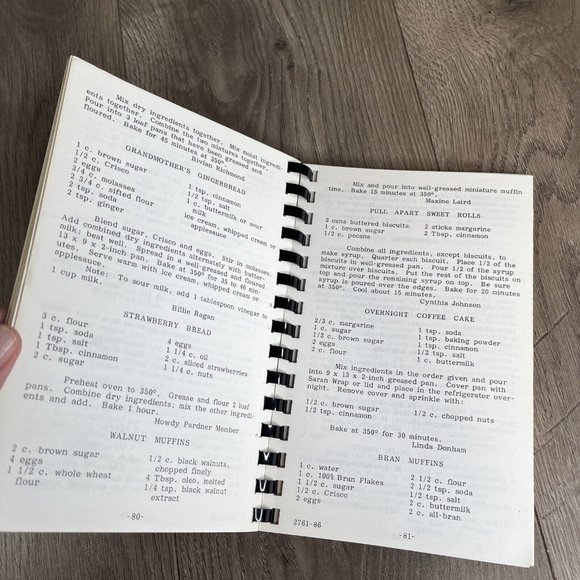 Mix dry ingredients together. Mix moist ingredi-
ents together. Combine the two mixtures together.
Pour into 3 loaf pans that have been greased and
floured. Bake for 45 minutes at 350°.
Bivian Richmond
GRANDMOTHER'S GINGERBREAD
1 c. brown sugar
1/2 c. Crisco
2 eggs
3/4 c. molasses
2 3/4 c. sifted flour
2 tsp. soda
2 tsp. ginger
1 tsp. cinnamon
1/2 tsp. salt
1 c. buttermilk or sour
milk
ice cream, whipped cream or
applesauce
Blend sugar, Crisco and eggs. Stir in molasses.
Add combined dry ingredients alternately with butter-
milk; beat well. Spread in a well-greased and floured
13 x 9 x 2-inch pan. Bake at 350° for 35 to 40 min-
utes. Serve warm with ice cream, whipped cream or
applesauce.
Note: To sour milk, add 1 tablespoon vinegar to
1 cup milk.
Billie Ragan
STRAWBERRY BREAD
3 c. flour
1 tsp. soda
1 tsp. salt
1 Tbsp. cinnamon
2 c. sugar
4 eggs
1 1/4 c. oil
2 c. sliced strawberries
1 1/4 c. nuts
Preheat oven to 350°. Grease and flour 2 loaf
pans. Combine dry ingredients; mix the other ingredi-
ents and add. Bake 1 hour.
Howdy Pardner Member
WALNUT MUFFINS
2 c. brown sugar
4 eggs
1 1/2 c. whole wheat
flour
1/2 c. black walnuts,
chopped finely
4 Tbsp. oleo, melted
1/4 tsp. black walnut
extract
-80-
Mix and pour into well-greased miniature muffin
tins. Bake 15 minutes at 350°.
Maxine Laird
PULL APART SWEET ROLLS
3 cans buttered biscuits
1 c. brown sugar
1/2 c. pecans
2 sticks margarine
2 Tbsp. cinnamon
Combine all ingredients, except biscuits, to
make syrup. Quarter each biscuit. Place 1/2 of the
biscuits in well-greased pan. Pour 1/2 of the syrup
mixture over biscuits. Put the rest of the biscuits on
top and pour the remaining syrup on top. Be sure
syrup is poured over the edges. Bake for 20 minutes
at 350°. Cool about 15 minutes.
Cynthia Johnson
OVERNIGHT COFFEE CAKE
2/3 c. margarine
1 c. sugar
1/2 c. brown sugar
2 eggs
2 c. flour
1 tsp. soda
1 tsp. baking powder
1 tsp. cinnamon
1/2 tsp. salt
1 c. buttermilk
Mix ingredients in the order given and pour
into 9 x 13 x 2-inch greased pan. Cover pan with
Saran Wrap or lid and place in the refrigerator over-
night. Remove cover and sprinkle with:
1/2 c. brown sugar
1/2 tsp. cinnamon
1/2 c. chopped nuts
Bake at 350° for 30 minutes.
Linda Donham
BRAN MUFFINS
1 c. water
1 c. 100% Bran Flakes
1 1/2 c. sugar
1/2 c. Crisco
2 eggs
2 1/2 c. flour
2 1/2 tsp. soda
1/2 tsp. salt
2 c. buttermilk
2 c. all-bran
2761-86
-81-